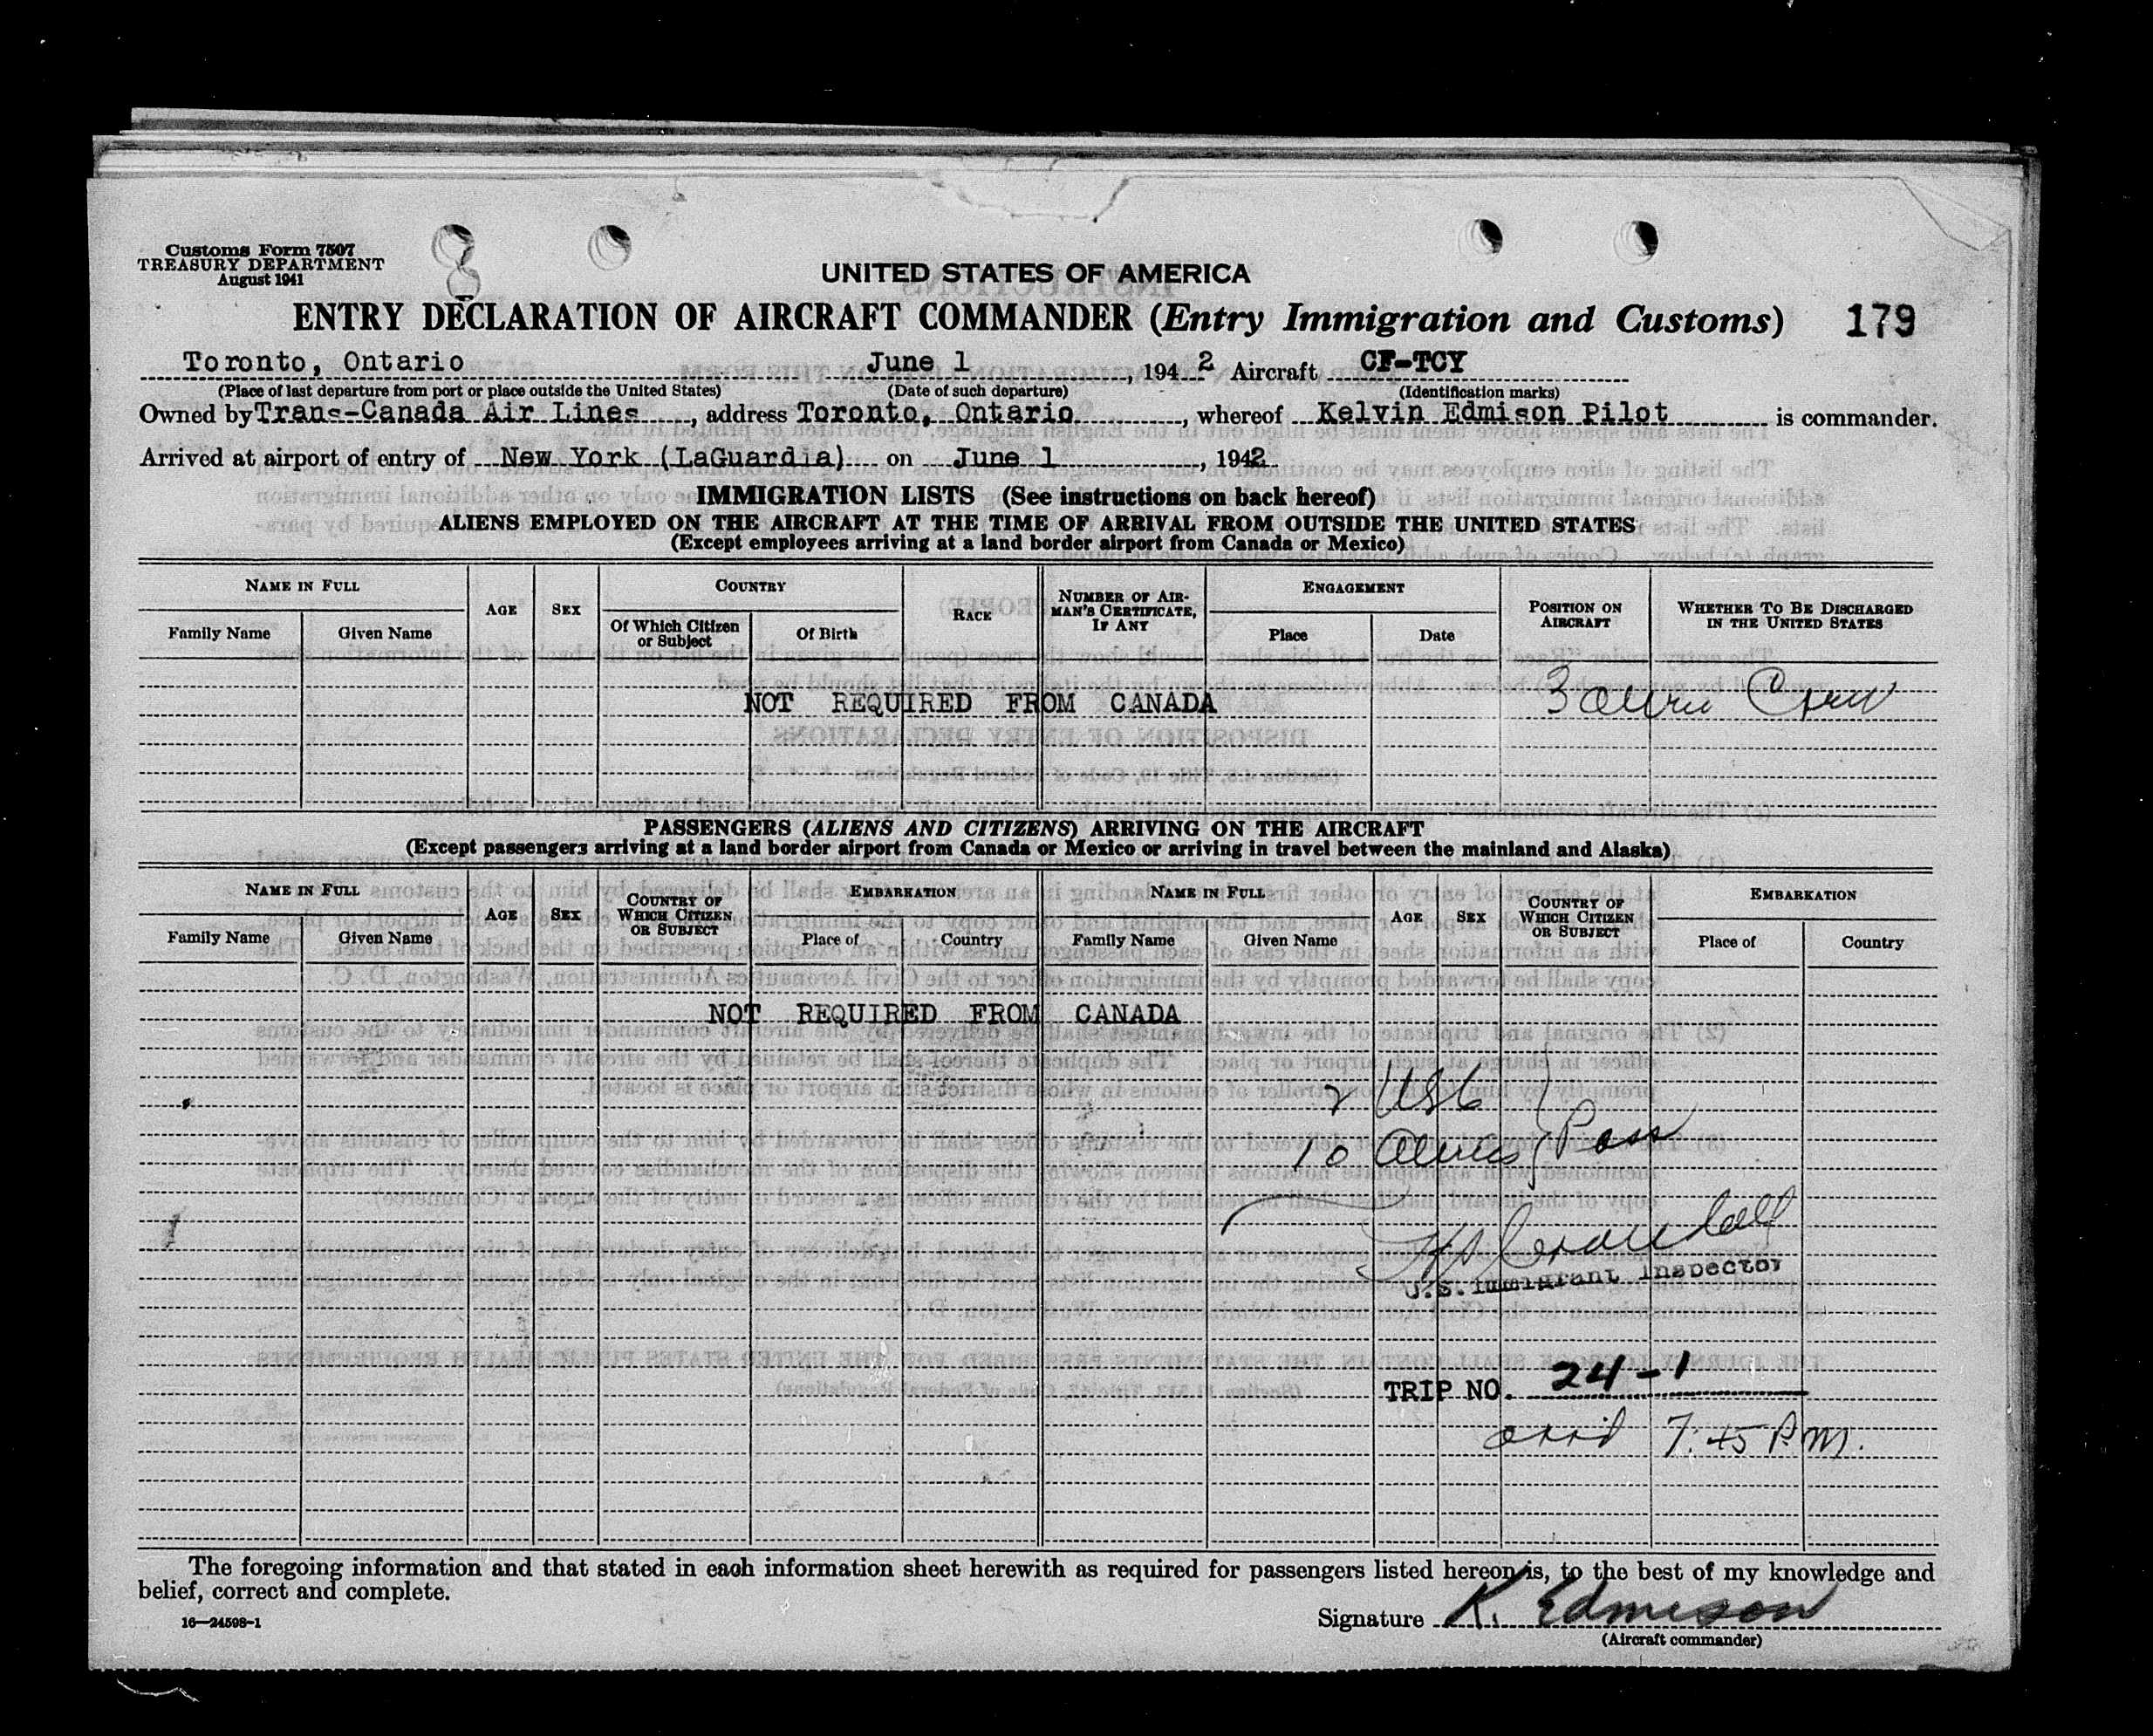 Customs Form 7507
TREASURY DEPARTMENT
August 1941
UNITED STATES OF AMERICA
ENTRY DECLARATION OF AIRCRAFT COMMANDER (Entry Immigration and Customs) 179
Toronto, Ontario June 1, 1942 Aircraft CF-TCY
(Place of last departure from port or place outside the United States) (Date of such departure) (Identification marks)
Owned by Trans-Canada Air Lines, address Toronto, Ontario, whereof Kelvin Edmison Pilot is commander.
Arrived at airport of entry of New York (LaGuardia) on June 1, 1942
IMMIGRATION LISTS (See instructions on back hereof)
ALIENS EMPLOYED ON THE AIRCRAFT AT THE TIME OF ARRIVAL FROM OUTSIDE THE UNITED STATES
(Except employees arriving at a land border airport from Canada or Mexico)
NAME IN FULL AGE SEX COUNTRY RACE NUMBER OF AIRMAN'S CERTIFICATE, IF ANY ENGAGEMENT POSITION ON AIRCRAFT WHETHER TO BE DISCHARGED IN THE UNITED STATES
Family Name Given Name Of Which Citizen or Subject Of Birth Place Date
NOT REQUIRED FROM CANADA 3 alien Crew
PASSENGERS (ALIENS AND CITIZENS) ARRIVING ON THE AIRCRAFT
(Except passengers arriving at a land border airport from Canada or Mexico or arriving in travel between the mainland and Alaska)
NAME IN FULL AGE SEX COUNTRY OF WHICH CITIZEN OR SUBJECT EMBARKATION NAME IN FULL AGE SEX COUNTRY OF WHICH CITIZEN OR SUBJECT EMBARKATION
Family Name Given Name Place of Country Family Name Given Name Place of Country
NOT REQUIRED FROM CANADA
2 USC
10 aliens } Pass
U.S. Immigrant Inspector
TRIP NO. 24-1
arrid 7:45 P.M.
The foregoing information and that stated in each information sheet herewith as required for passengers listed hereon is, to the best of my knowledge and
belief, correct and complete.
16—24598-1
Signature K. Edmison
(Aircraft commander)